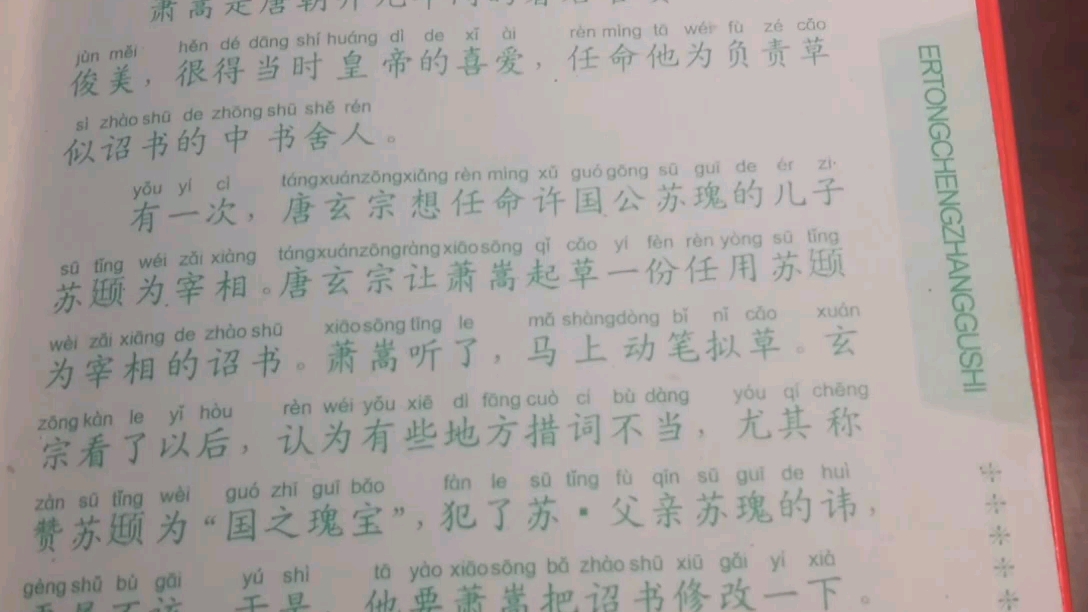 萧嵩是唐朝开元年间的
jùn měi hěn dé dāng shí huáng dì de xǐ ài rèn mìng tā wéi fù zé cǎo
俊美，很得当时皇帝的喜爱，任命他为负责草
sì zhào shū de zhōng shū shě rén
似诏书的中书舍人。
yǒu yí cì tángxuánzōngxiǎng rèn mìng xǔ guó gōng sū guī de ér zi
有一次，唐玄宗想任命许国公苏瑰的儿子
sū tǐng wéi zǎi xiàng tángxuánzōngràng xiāo sōng qǐ cǎo yí fèn rèn yòng sū tǐng
苏颋为宰相。唐玄宗让萧嵩起草一份任用苏颋
wèi zǎi xiāng de zhào shū xiāo sōng tīng le mǎ shàngdòng bǐ nǐ cǎo xuán
为宰相的诏书。萧嵩听了，马上动笔拟草。玄
zōng kàn le yǐ hòu rèn wéi yǒu xiē dì fāng cuò cí bù dàng yóu qí chēng
宗看了以后，认为有些地方措词不当，尤其称
zàn sū tǐng wèi guó zhī guī bǎo fàn le sū tǐng fù qīn sū guī de huì
赞苏颋为“国之瑰宝”，犯了苏·父亲苏瑰的讳，
gèng shǔ bù gāi yú shì tā yào xiāo sōng bǎ zhào shū xiū gǎi yí xià
不该。于是，他要萧嵩把诏书修改一下。
ERTONGCHENGZHANGGUSHI